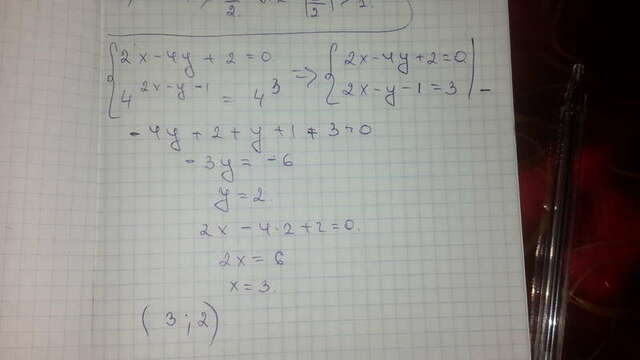 2x - 4y + 2 = 0
4^{2x-y-1} = 4^3
=>
2x - 4y + 2 = 0
2x - y - 1 = 3
-
- 4y + 2 + y + 1 + 3 = 0
- 3y = - 6
y = 2.
2x - 4·2 + 2 = 0.
2x = 6
x = 3.
( 3 ; 2 )